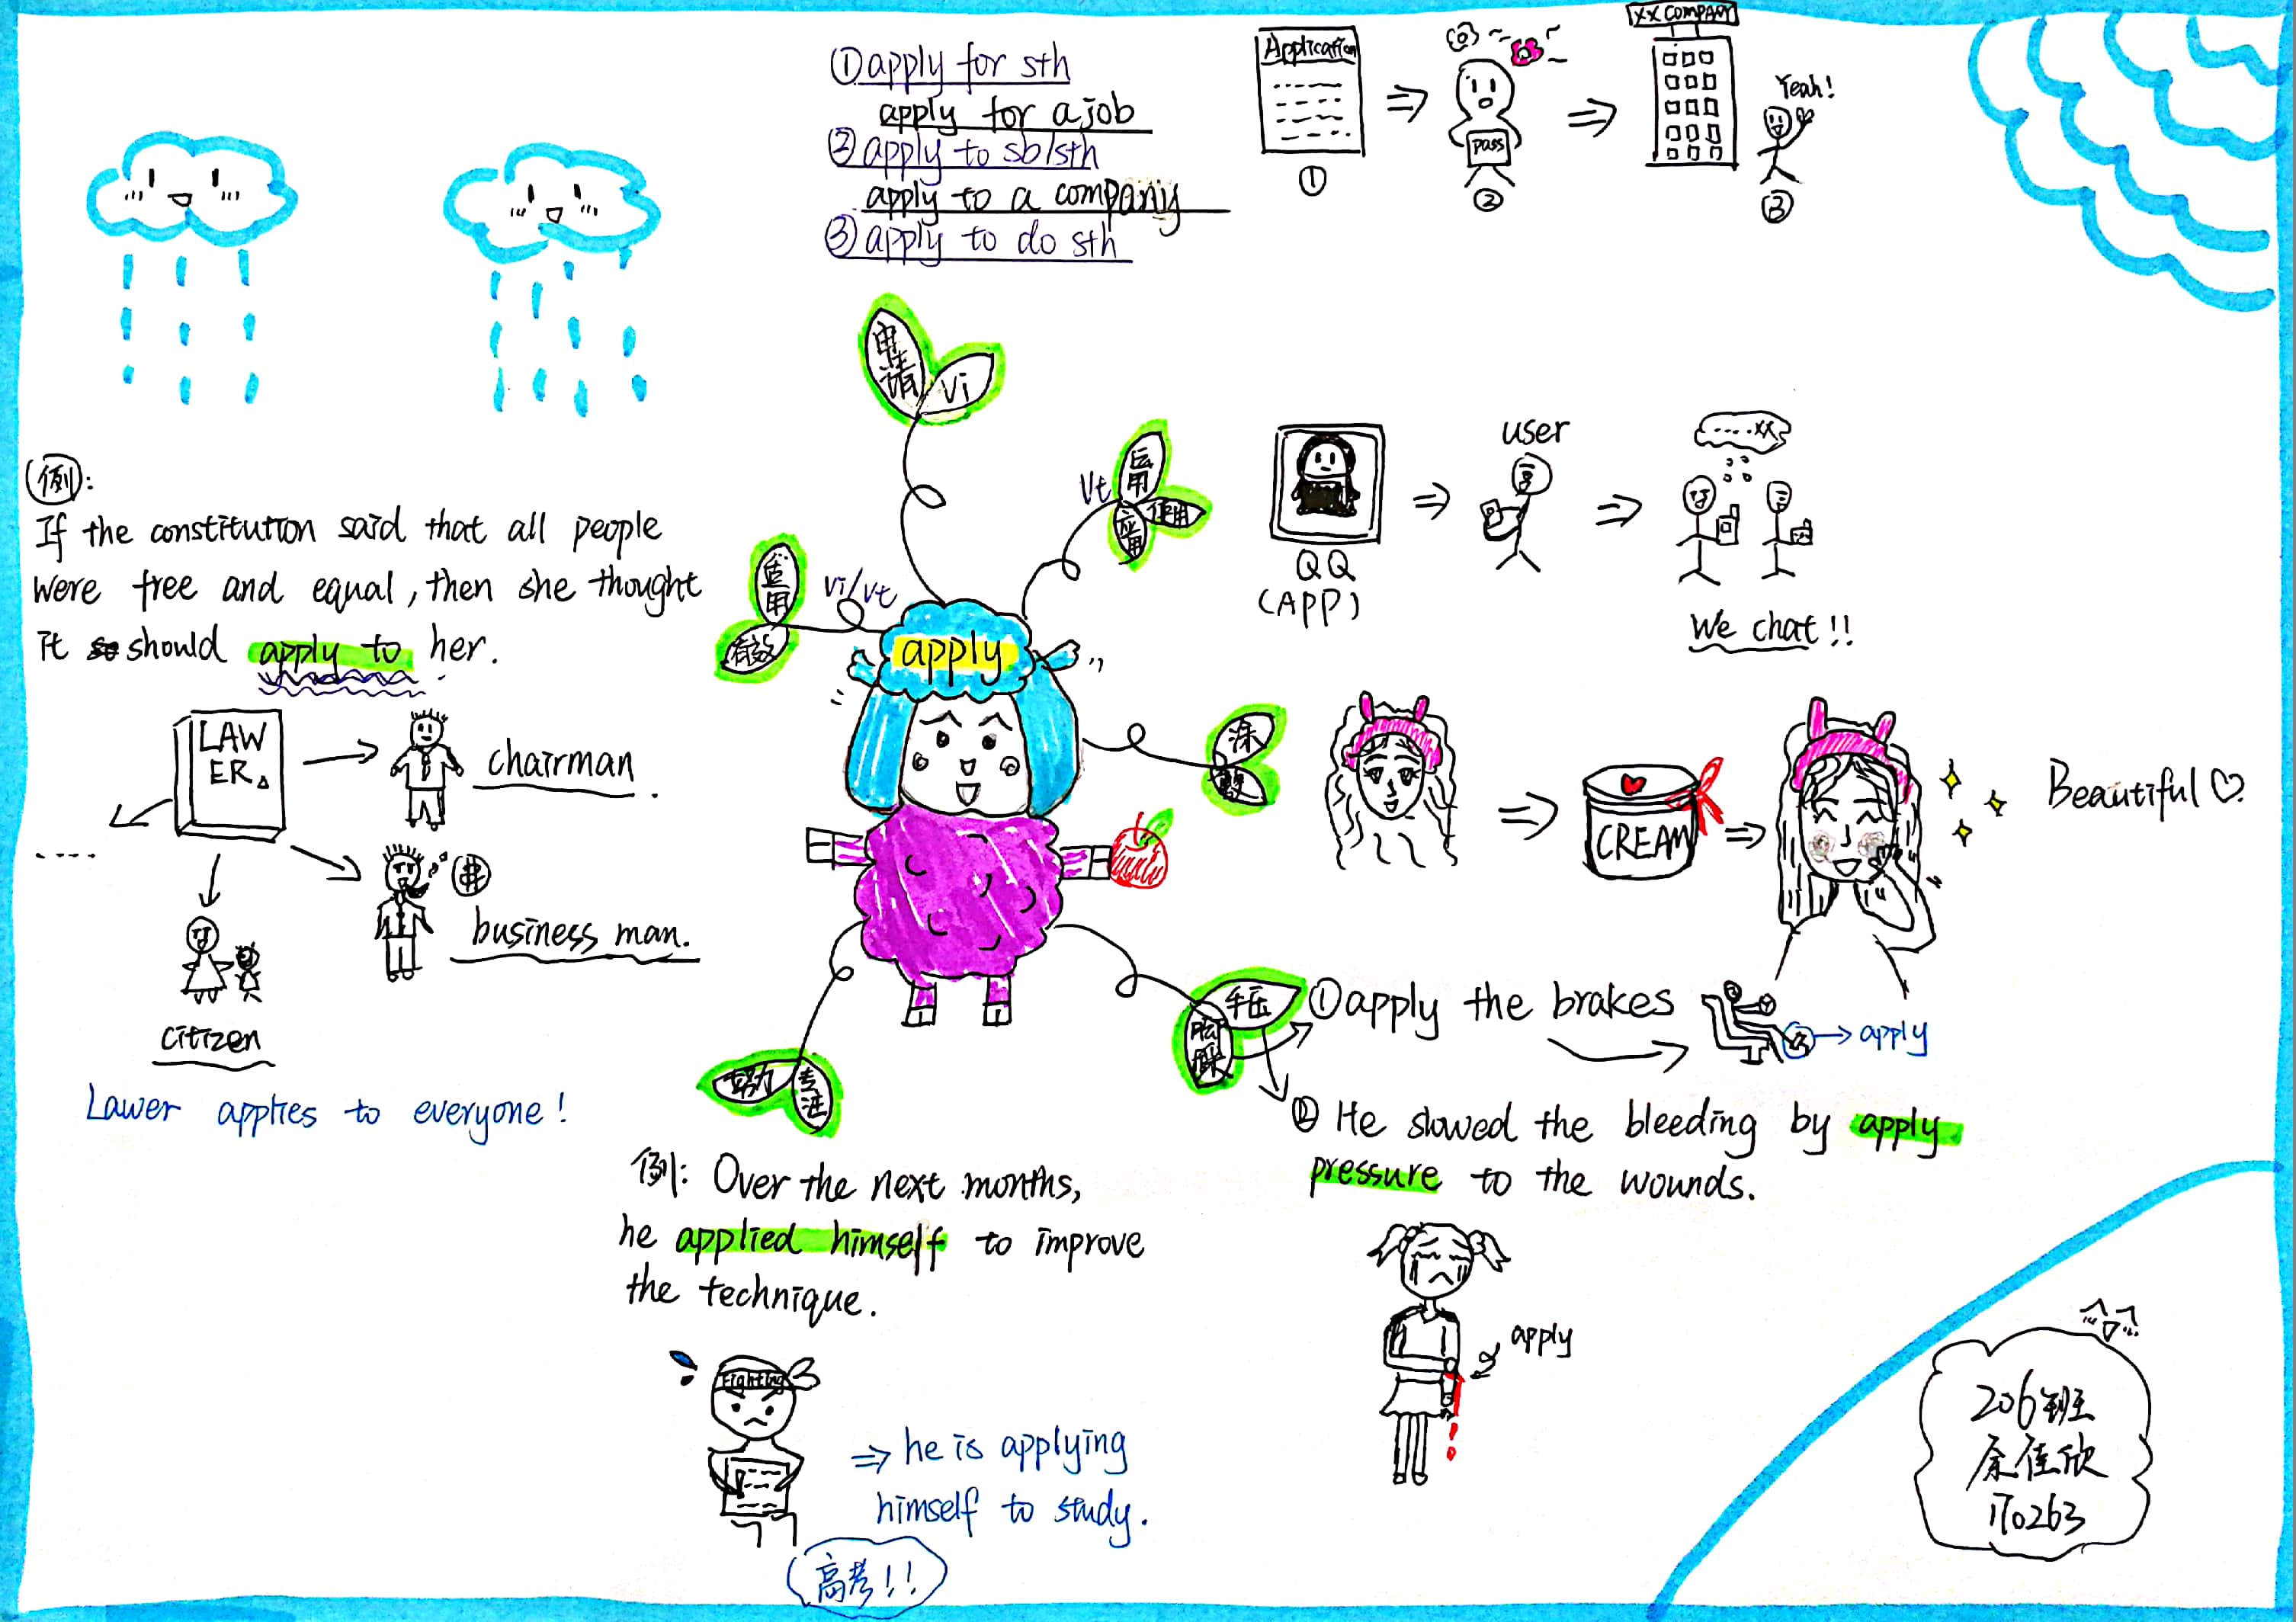 ①apply for sth
apply for a job
②apply to sb/sth
apply to a company
③apply to do sth
Application
①
pass
②
XX COMPANY
Yeah!
③
申请
vi
vt
运用
使用
应用
QQ
(APP)
user
.....xx
We chat!!
例:
If the constitution said that all people
were free and equal, then she thought
it should apply to her.
适用
有效
vi/vt
apply
LAW
ER
chairman.
business man.
citizen
Lawer applies to everyone!
涂
敷
CREAM
Beautiful♡.
手压
脚踩
①apply the brakes
apply
② He slowed the bleeding by apply
pressure to the wounds.
apply
努力
专注
例: Over the next months,
he applied himself to improve
the technique.
Fighting
⇒ he is applying
himself to study.
高考!!
206班
余佳欣
170263